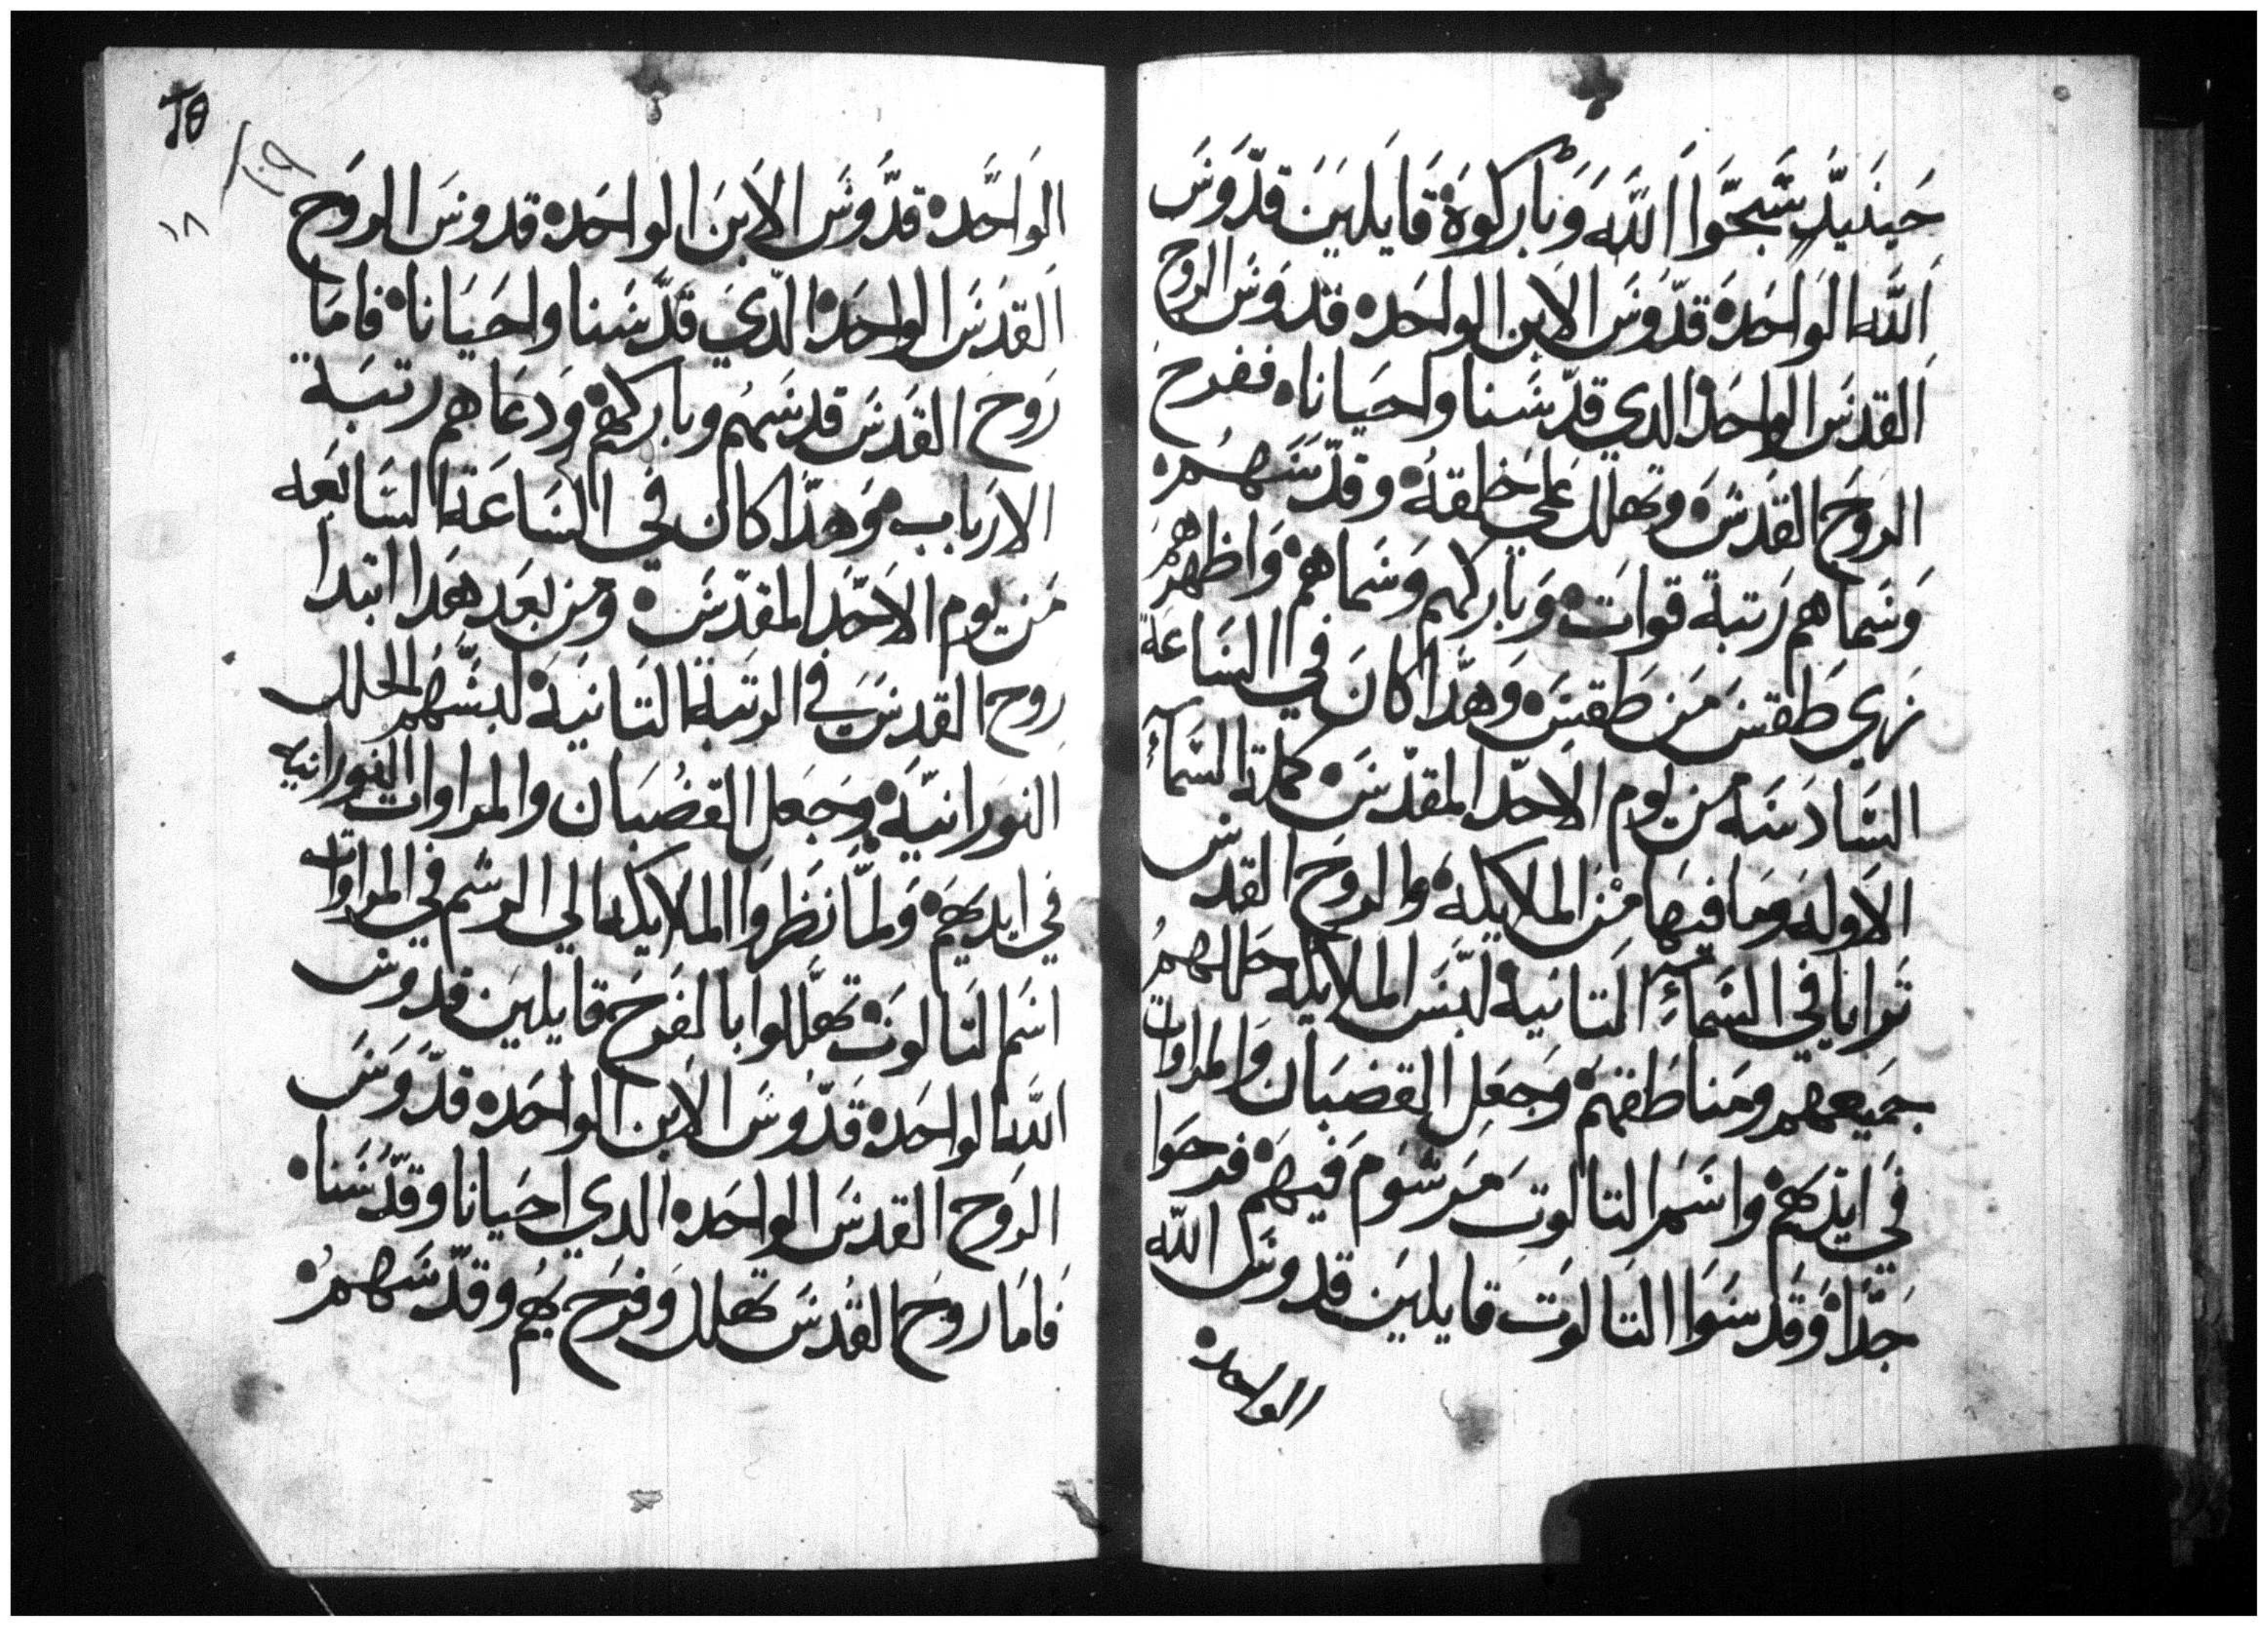 حَينَيدٍ سَبَحَّوَا اَللَّهَ وَبَاركوَهَ قَايَلَيَنَ قدّوَسَ
اَللَّه الوَاحَدهَ قدّوَسَ الاَبن الواحَده قدوَسَ الروح
اَلقدسَ الواحَدهَ الدي قدّسَنا واحيَانا، ففرح
الروَح القدَسَ وتهلل عَلي خلقتهَ وقدّسَهُمَ
وَسَماهم رَتبة قواتَ وَبَاركهم وَسَماهمَ وَاظهرهَم
زي طَقسَ مَن طَقسَ وَهَدا كَانَ في السَاعَة
السَادسَه مَن يوم الاَحدّ المقدّسَ كملة السَمآءِ
الاوله وَمَا فيهَا مَن الملايكهَ والروَح القدسَ
تَرايا في السَمآءِ التانية لبّسَ الملايكه حللهمَ
جَميعهم ومَناطَقهمَ وَجعل القضبَان وَالمراوات
في ايدَيهمَ واسَم التالوتَ مَرسَوَم فيهمَ فرحوا
جَدّاَ وَقدسَوا التالوَتَ قايليَن قدوسَ الله
الواحده
الوَاحَده قدَّوَسَ الاَبنَ الواحَده قدوسَ الروَح
اَلقدَسَ الواحَدهَ الدَيَ قدّسَنا واحَيَاناَ فامَا
رَوح القدَسَ قدسَهُم وباركهمَ وَدعَاهم رتبَة
الاربابَ وَهدَا كان في السَاعَة السَابعَه
مَن يوم الاَحَدّ المقدّسَ ومَن بعَد هَدا ابتدا
روح القدسَ في الرتبة التَانيَةَ لبَسَهُم الحلل
النورانيّةَ وجَعل القضُبَان والمراوات النورانيه
في ايديهمَ وَلمَّا نَظَروَا الملايكه الي الرسَم في المراوات
اسَم التَالوَتَ تهلَّلوا بالفَرحَ قايليَن قدوسَ
اللَه الواحَدهَ قَدّوَسَ الاَبن الواحَده قدَّوَسَ
الروَح القدسَ الواحَده الدي احيَانا وقدّسَنا
فَامَا روَح القُدسَ تهلل وَفرَح بهُم وقدّسَهمُ
١٨
١٠٩